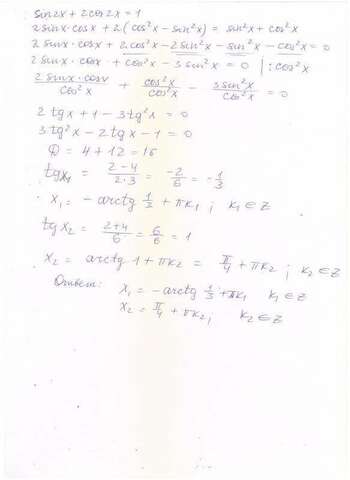 sin2x + 2cos2x = 1
2sinx·cosx + 2(cos²x - sin²x) = sin²x + cos²x
2 sinx·cosx + 2cos²x - 2sin²x - sin²x - cos²x = 0
2 sinx·cosx + cos²x - 3 sin²x = 0 |: cos²x
2 sinx·cosx/cos²x + cos²x/cos²x - 3 sin²x/cos²x = 0
2 tgx + 1 - 3tg²x = 0
3tg²x - 2tgx - 1 = 0
D = 4 + 12 = 16
tgx₁ = (2-4)/(2·3) = -2/6 = -1/3
x₁ = -arctg 1/3 + πk₁; k₁ ∈ Z
tgx₂ = (2+4)/6 = 6/6 = 1
x₂ = arctg 1 + πk₂ = π/4 + πk₂; k₂ ∈ Z
Ответ: x₁ = -arctg 1/3 + πk₁ k₁ ∈ Z
x₂ = π/4 + πk₂; k₂ ∈ Z